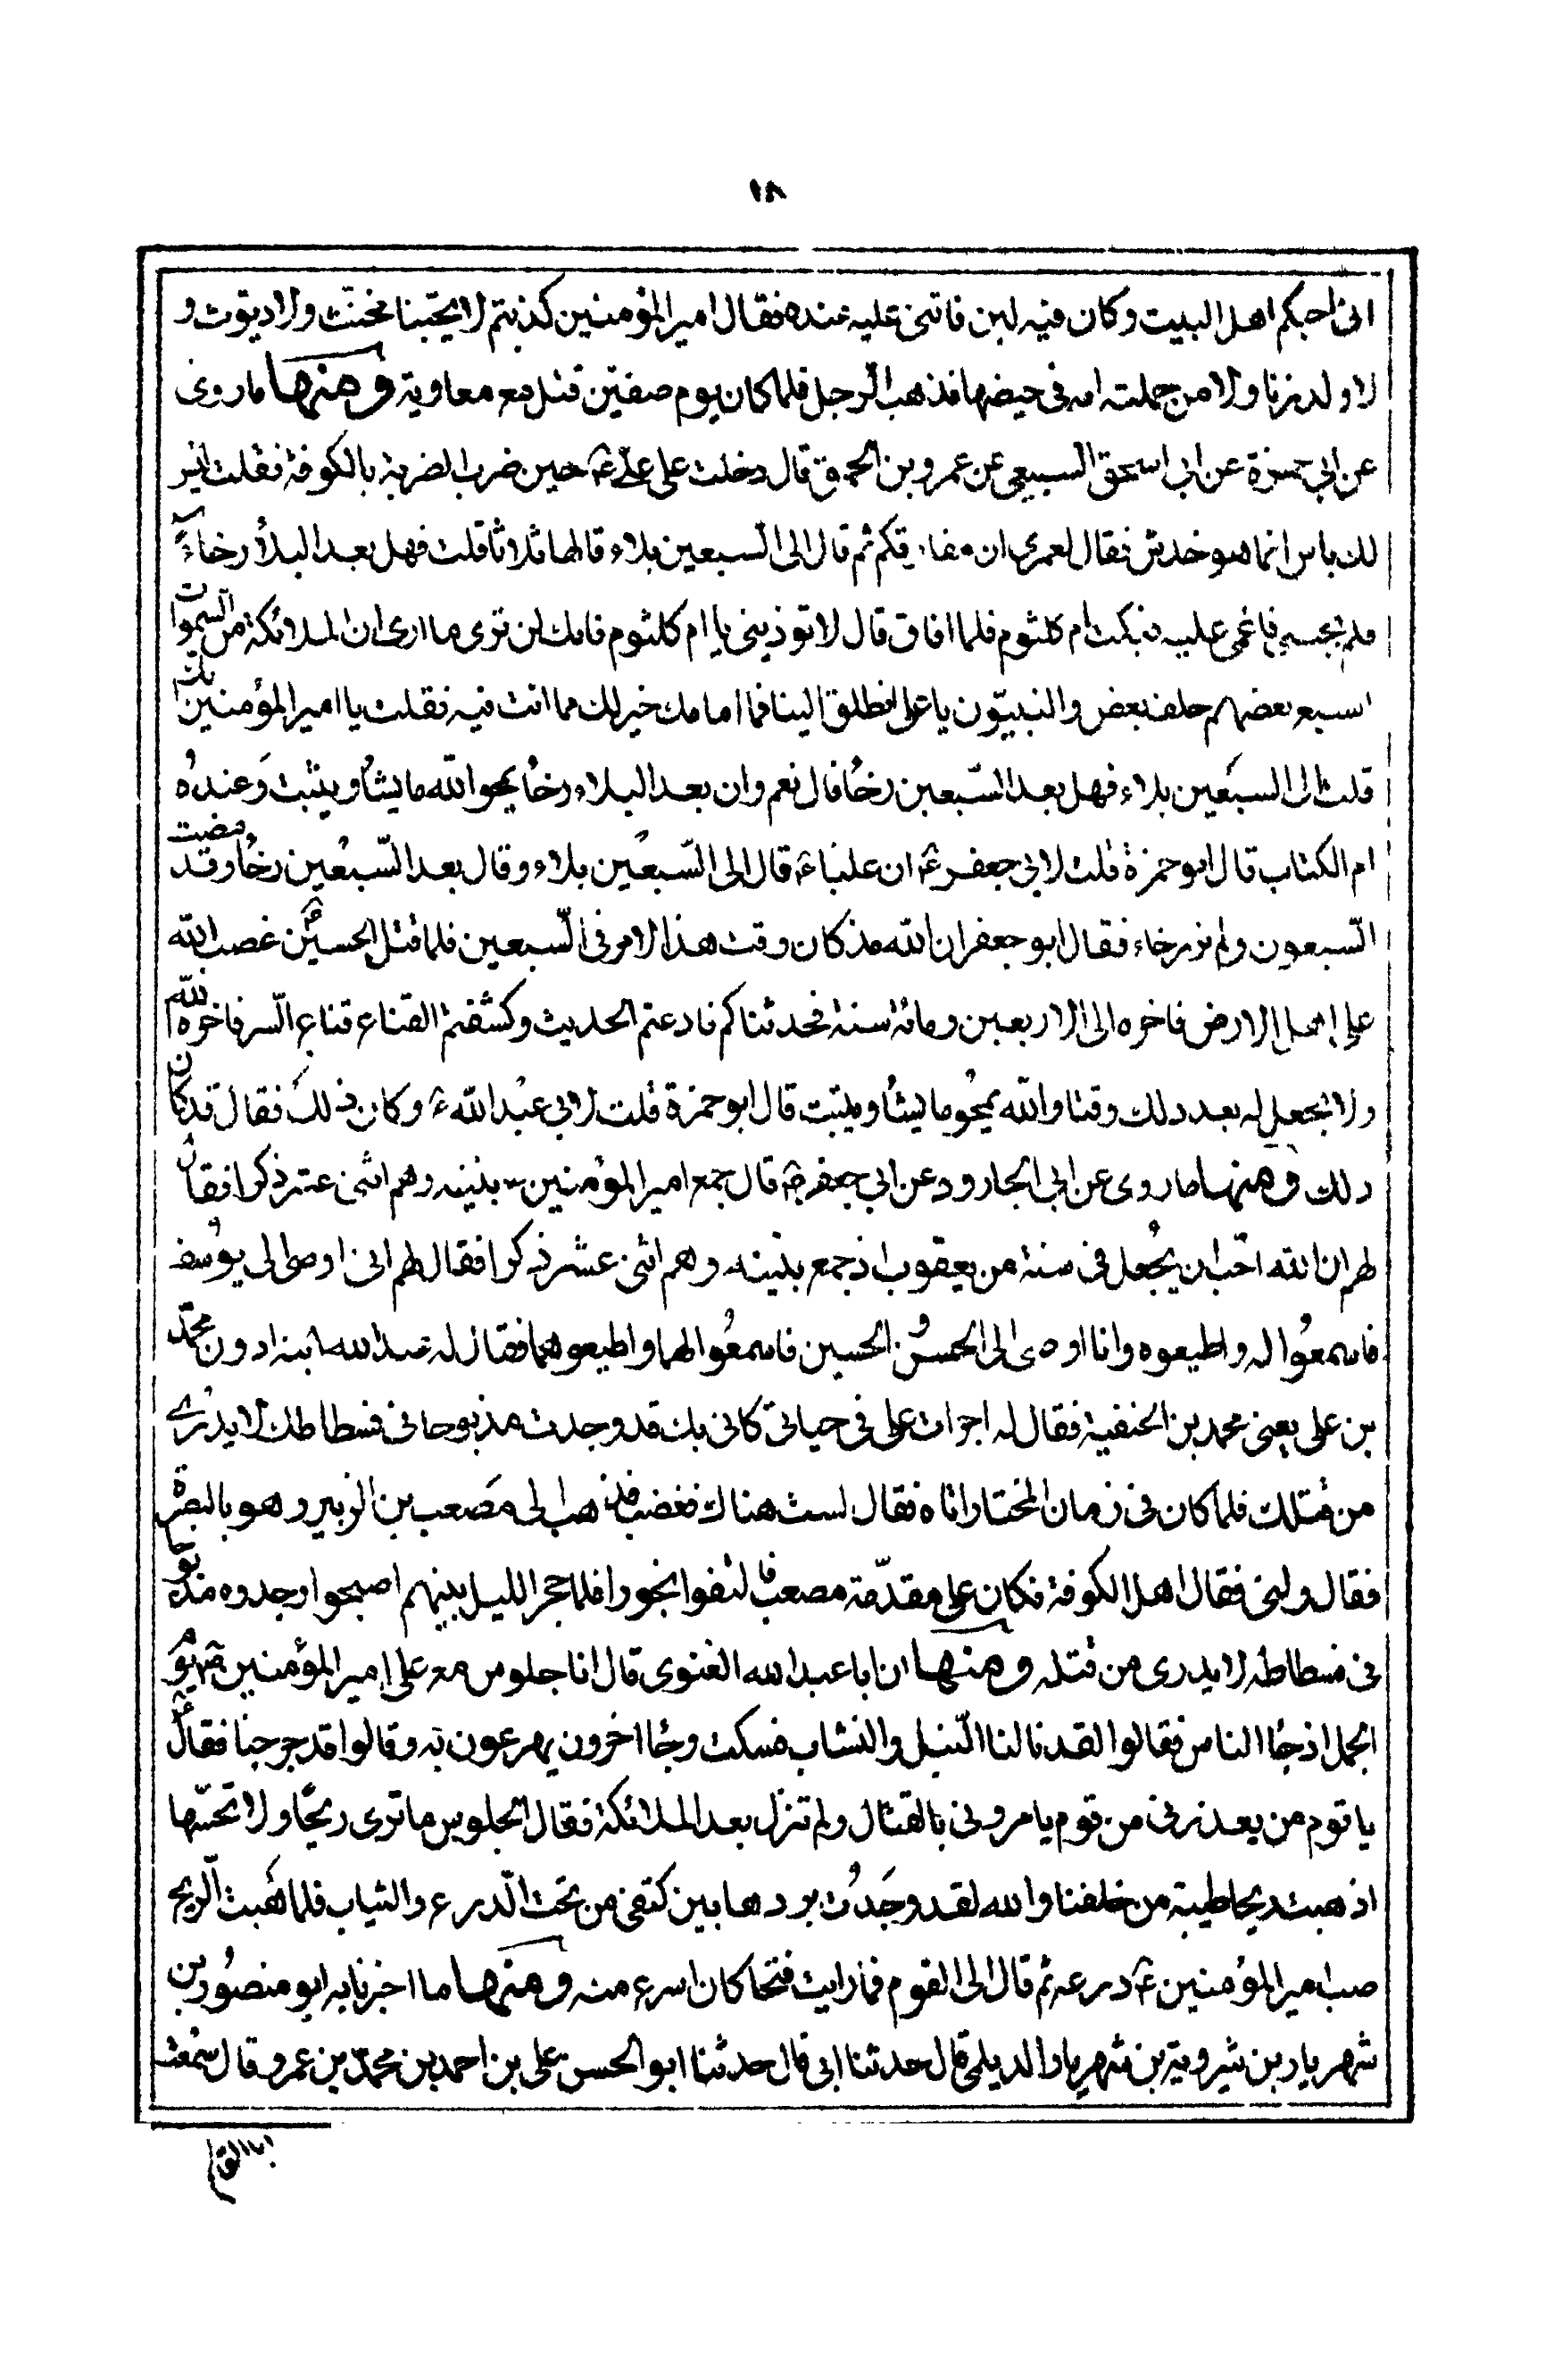 ١٨
انى احبكم اهل البيت وكان فيه لين فاثنى عليه عنده فقال امير المؤمنين كذبتم لا يحبنا مخنث ولا ديوث و
لا ولد زنا ولا من حملته امه فى حيضها فذهب الرجل فلما كان يوم صفين قتل مع معاوية ومنها ما روى
عن ابى حمزة عن ابى اسحق السبيعى عن عمرو بن الحمق قال دخلت على على ع حين ضرب الضربة بالكوفة فقلت ليس
لك باس انما هو خدش فقال لعمرى ان مفارقكم ثم قال الى السبعين بلاء قالها ثلاثا قلت فهل بعد البلاء رخاء
فلم يجبنى فاغمى عليه فبكت ام كلثوم فلما افاق قال لا توذينى يا ام كلثوم فانك لن ترى ما ارى ان الملائكة من السموات
السبع بعضهم خلف بعض والنبيون يا على انطلق الينا فما امامك خير لك مما انت فيه فقلت يا امير المؤمنين انك
قلت الى السبعين بلاء فهل بعد السبعين رخا قال نعم وان بعد البلاء رخا يمحو الله ما يشا ويثبت وعنده
ام الكتاب قال ابو حمزة قلت لابى جعفر ع ان عليا ع قال الى السبعين بلاء وقال بعد السبعين رخا وقد مضت
السبعون ولم نر رخاء فقال ابو جعفر ان الله قد كان وقت هذا الامر فى السبعين فلما قتل الحسين ع غضب الله
على اهل الارض فاخره الى الاربعين ومائة سنة فحدثناكم فادعتم الحديث وكشفتم القناع قناع السر فاخره الله
ولا يجعل له بعد ذلك وقتا والله يمحو ما يشا ويثبت قال ابو حمزة قلت لابى عبد الله ع وكان ذلك فقال قد كان
ذلك ومنها ما روى عن ابى الجارود عن ابى جعفر ع قال جمع امير المؤمنين بنيه وهم اثنى عشر ذكرا فقال
لهم ان الله احب ان يجعل فى سنة من يعقوب اذ جمع بنيه وهم اثنى عشر ذكرا فقال لهم انى اوصى الى يوسف
فاسمعوا له واطيعوه وانا اوصى الى الحسن و الحسين فاسمعوا لهما واطيعوهما فقال له عبد الله ابنه ادون محمد
بن على يعنى محمد بن الحنفية فقال له اجرات على فى حياتى كانى بك قد وجدت مذبوحا فى فسطاطك لا يدرى
من قتلك فلما كان فى زمان المختار اتاه فقال لست هناك فغضب فذهب الى مصعب بن الزبير وهو بالبصرة
فقال ولنى فقال اهل الكوفة فكان على مقدمة مصعب فالتقوا بحورا فلما حجز الليل بينهم اصبحوا وجدوه مذبوحا
فى فسطاطه لا يدرى من قتله ومنها ان ابا عبد الله الغنوى قال انا جلوس مع على امير المؤمنين ع يوم
الجمل اذ جا الناس فقالوا لقد نالنا النبل والنشاب فسكت وجا اخرون يهرعون به وقالوا قد جرحنا فقال ع
يا قوم من يعذرنى من قوم يامرونى بالقتال ولم تنزل بعد الملائكة فقال الجلوس ما ترى ريحا ولا تحسها
اذ هبت ريحا طيبة من خلفنا والله لقد وجدت بردها بين كتفى من تحت الدرع والثياب فلما هبت الريح
صب امير المؤمنين ع درعه ثم قال الى القوم فما رايت فتحا كان اسرع منه ومنها ما اخبرنا به ابو منصور بن
شهريار بن شيرويه بن شهريار الديلمى قال حدثنا ابى قال حدثنا ابو الحسن على بن احمد بن محمد بن عمرو قال سمعت